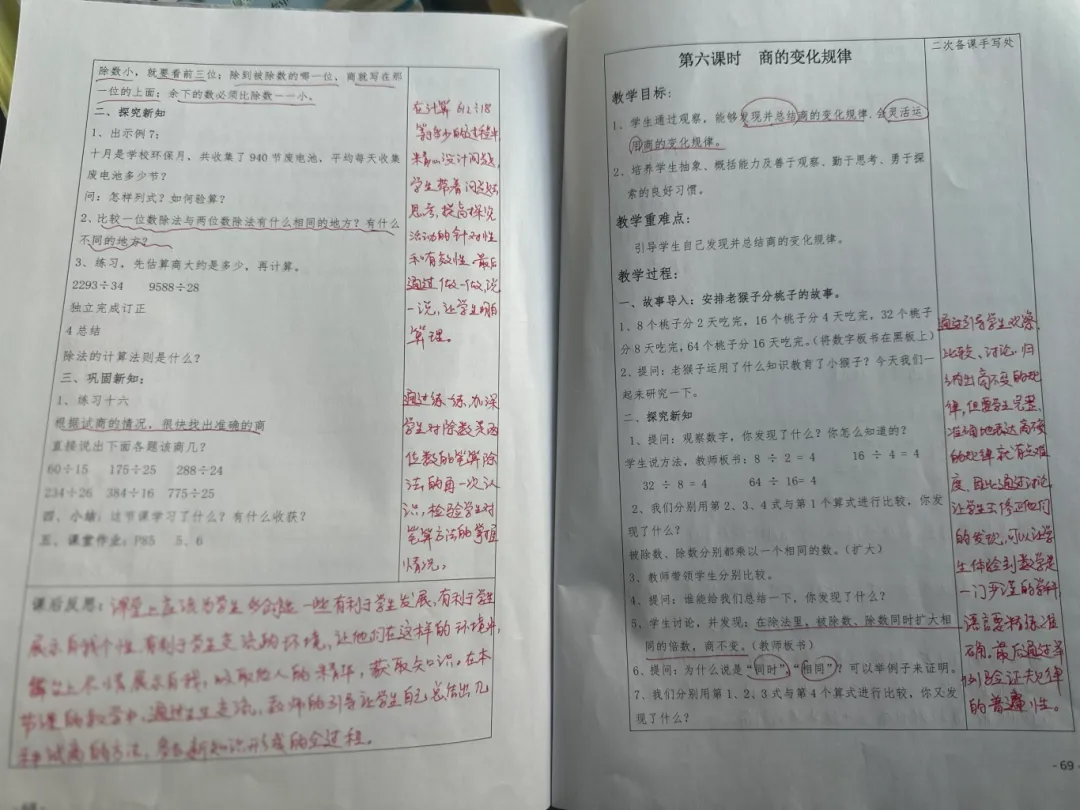 除数小，就要看前三位；除到被除数的哪一位，商就写在那
一位的上面；余下的数必须比除数一一小。
二、探究新知
1、出示例7；
十月是学校环保月，共收集了940节废电池，平均每天收集
废电池多少节？
问：怎样列式？如何验算？
2、比较一位数除法与两位数除法有什么相同的地方？有什么
不同的地方？
3、练习，先估算商大约是多少，再计算。
2293÷34 9588÷28
独立完成订正
4总结
除法的计算法则是什么？
三、巩固新知：
1、练习十六
根据试商的情况，很快找出准确的商
直接说出下面各题该商几？
60÷15 175÷25 288÷24
234÷26 384÷16 775÷25
四、小结：这节课学习了什么？有什么收获？
五、课堂作业：P85 5、6
在计算612÷18
等于多少的过程中，
来设计问题，
学生带着问题去
思考，提高探究
活动的针对性
和有效性。最后
通过做一做，说
一说，让学生明白
算理。
通过练一练，加深
学生对除数是两
位数的笔算除
法的再一次认
识，检验学生对
笔算方法的掌握
情况。
课后反思：课堂上应该为学生多创造一些有利于学生发展，有利于学生
展示自我个性，有利于学生交流的环境，让他们在这样的环境中，
上尽情展示自我，吸取他人的精华，获取知识。在本
节课的教学中，通过生生交流，教师的引导让学生自己总结出几
种试商的方法，新知识形成的全过程。
二次备课手写处
第六课时 商的变化规律
教学目标：
1、学生通过观察，能够发现并总结商的变化规律，会灵活运
用商的变化规律。
2、培养学生抽象、概括能力及善于观察、勤于思考、勇于探
索的良好习惯。
教学重难点：
引导学生自己发现并总结商的变化规律。
教学过程：
一、故事导入：安排老猴子分桃子的故事。
1、8个桃子分2天吃完，16个桃子分4天吃完，32个桃子
分8天吃完，64个桃子分16天吃完。（将数字板书在黑板上）
2、提问：老猴子运用了什么知识教育了小猴子？今天我们一
起来研究一下。
二、探究新知
1、提问：观察数字，你发现了什么？你怎么知道的？
学生说方法，教师板书：8 ÷ 2 = 4 16 ÷ 4 = 4
32 ÷ 8 = 4 64 ÷ 16= 4
2、我们分别用第2、3、4式与第1个算式进行比较，你发
现了什么？
被除数、除数分别都乘以一个相同的数。（扩大）
3、教师带领学生分别比较。
4、提问：谁能给我们总结一下，你发现了什么？
5、学生讨论，并发现：在除法里，被除数、除数同时扩大相
同的倍数，商不变。（教师板书）
6、提问：为什么说是“同时”，“相同”？可以举例子来证明。
7、我们分别用第1、2、3式与第4个算式进行比较，你又发
现了什么？
通过引导学生观察、
比较、讨论、归
纳出商不变的规
律，但要学生完整、
准确地表达商不变
的规律就有些难
度，因此通过讨论
让学生修正他们
的发现，可以让学
生体验到数学是
一门严谨的学科，
语言要精练准
确。最后通过举
例验证规律
的普遍性。
- 69 -